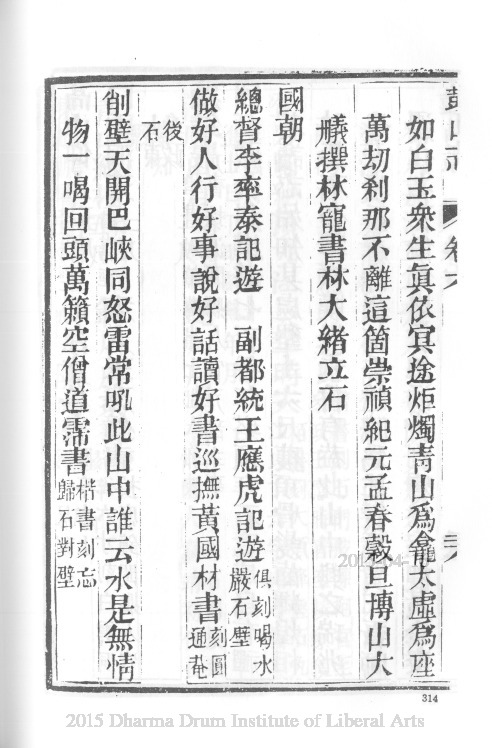 鼓山志 卷六
如白玉衆生眞依冥途炬燭靑山爲龕太虛爲座
萬刧刹那不離這箇崇禎紀元孟春穀旦博山大
艤撰林寵書林大緒立石
國朝
總督李率泰記遊 副都統王應虎記遊俱刻喝水巖石壁
做好人行好事說好話讀好書巡撫黃國材書刻圓通菴
後石
削壁天開巴峽同怒雷常吼此山中誰云水是無情
物一喝回頭萬籟空僧道霈書楷書刻忘歸石對壁
314
2015 Dharma Drum Institute of Liberal Arts